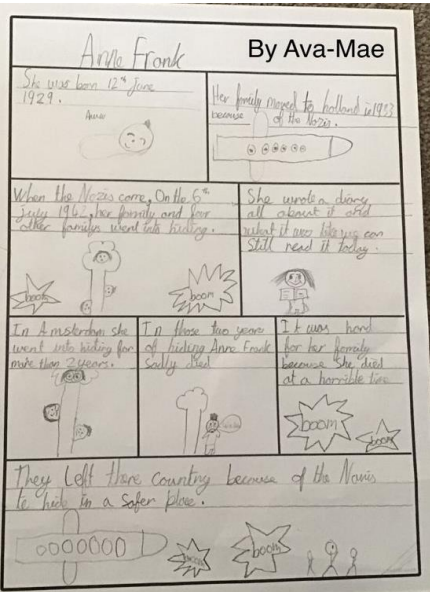 Anne Frank
By Ava-Mae
She was born 12th June
1929.
Anne
Her family moved to holland in 1933
because of the Nazis.
When the Nazis came, On the 6th
july 1942, her family and four
other familys went into hiding.
boom
boom
She wrote a diary
all about it and
what it was like we can
still read it today.
In Amsterdam she
went into hiding for
more than 2 years.
In those two years
of hiding Anne Frank
Sadly Died
It was hard
for her family
because she died
at a horrible time
boom
boom
They Left there country because of the Nazis
to hide in a safer place.
boom